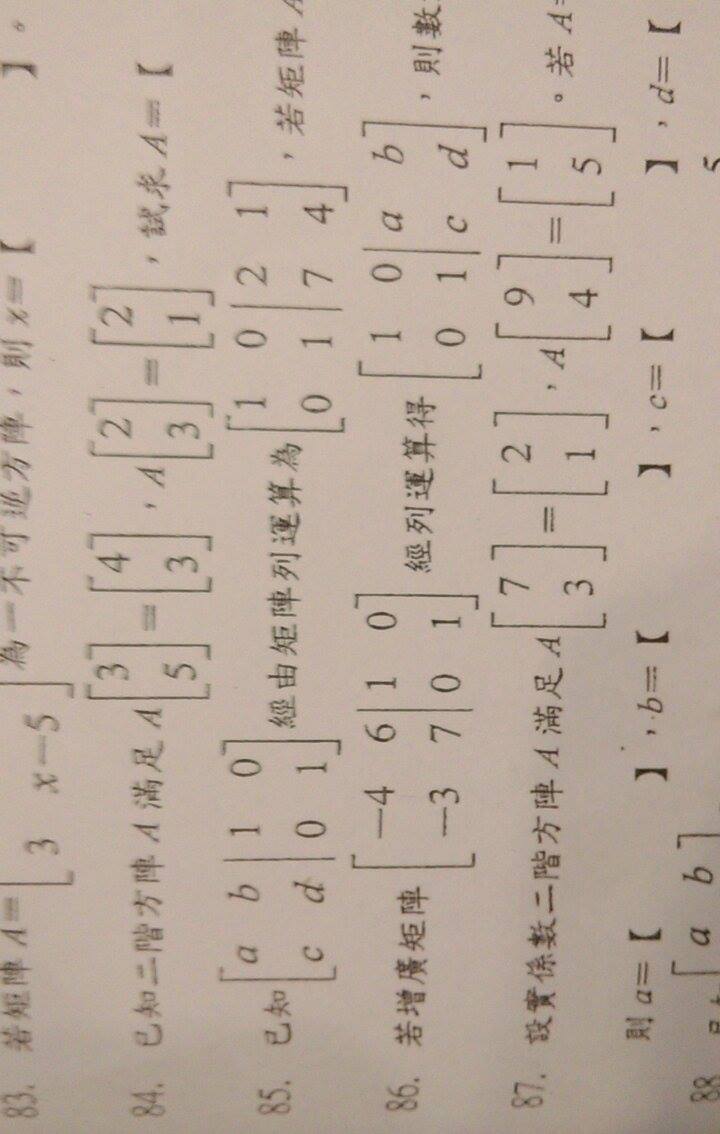 】。
83. 若矩陣 A=[ 3 x-5 ] 為一不可逆方陣，則 x=【
84. 已知二階方陣 A 滿足 A[3 5]=[4 3]，A[2 3]=[2 1]，試求 A=【
85. 已知[a b | 1 0
c d | 0 1] 經由矩陣列運算為 [1 0 | 2 1
0 1 | 7 4]，若矩陣 A
86. 若增廣矩陣 [-4 6 | 1 0
-3 7 | 0 1] 經列運算得 [1 0 | a b
0 1 | c d]，則數
87. 設實係數二階方陣 A 滿足 A[7 3]=[2 1]，A[9 4]=[1 5]。若 A=
則 a=【 】，b=【 】，c=【 】，d=【
88. [a b] 5